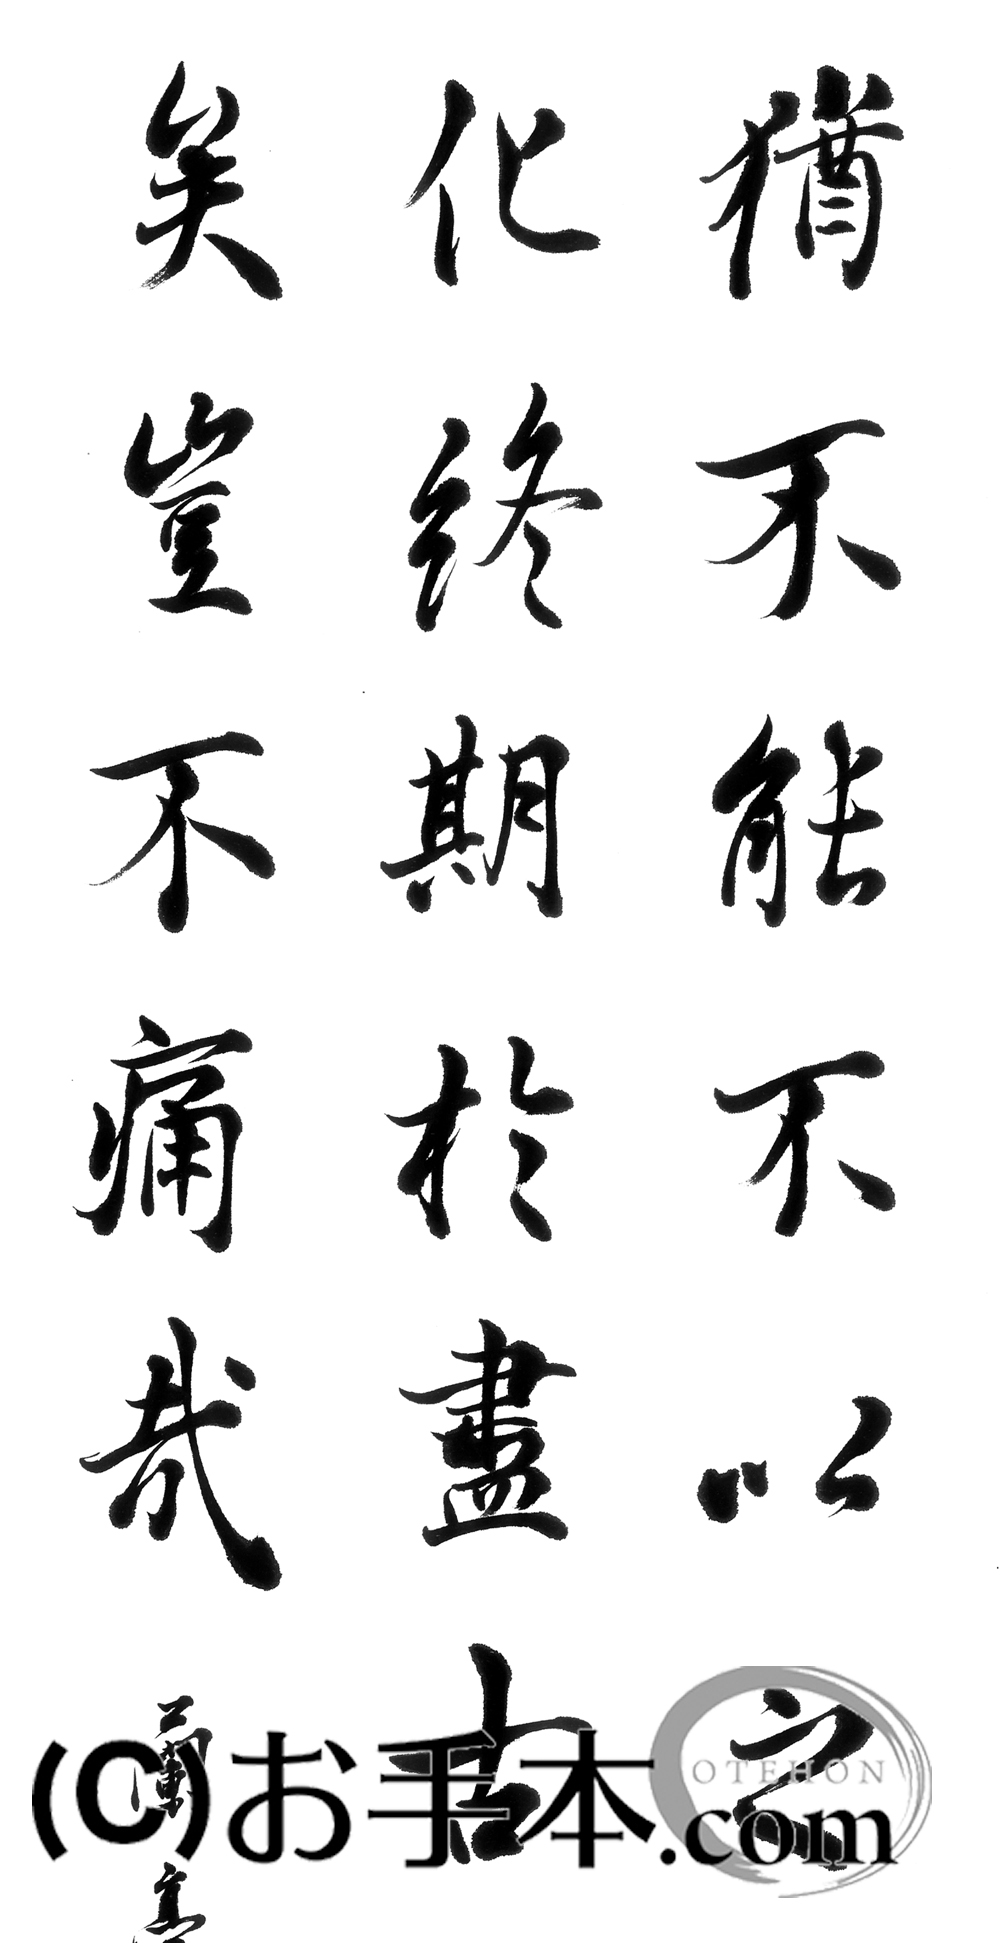 猶不能不以之
化終期於盡古
矣豈不痛哉
蘭亭
(C)お手本.com
OTEHON